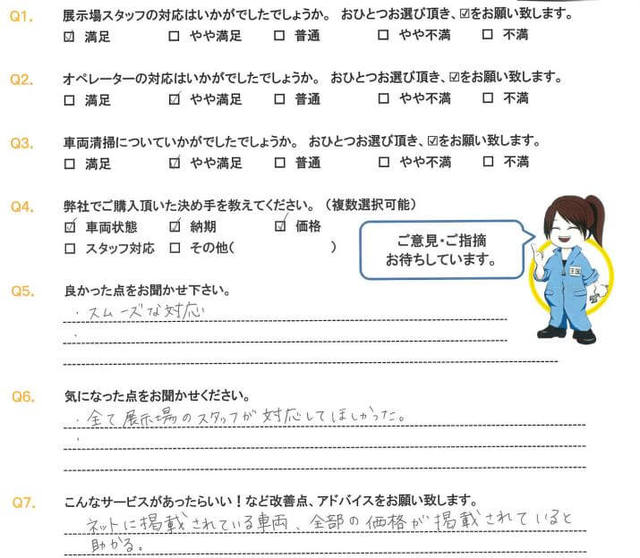 Q1. 展示場スタッフの対応はいかがでしたでしょうか。 おひとつお選び頂き、☑をお願い致します。
☑ 満足 □ やや満足 □ 普通 □ やや不満 □ 不満
Q2. オペレーターの対応はいかがでしたでしょうか。 おひとつお選び頂き、☑をお願い致します。
□ 満足 ☑ やや満足 □ 普通 □ やや不満 □ 不満
Q3. 車両清掃についていかがでしたでしょうか。 おひとつお選び頂き、☑をお願い致します。
□ 満足 ☑ やや満足 □ 普通 □ やや不満 □ 不満
Q4. 弊社でご購入頂いた決め手を教えてください。(複数選択可能)
☑ 車両状態 ☑ 納期 ☑ 価格
□ スタッフ対応 □ その他( )
ご意見・ご指摘
お待ちしています。
Q5. 良かった点をお聞かせ下さい。
・スムーズな対応
・
Q6. 気になった点をお聞かせください。
・全て展示場のスタッフが対応してほしかった。
・
Q7. こんなサービスがあったらいい!など改善点、アドバイスをお願い致します。
ネットに掲載されている車両、全部の価格が掲載されていると
助かる。